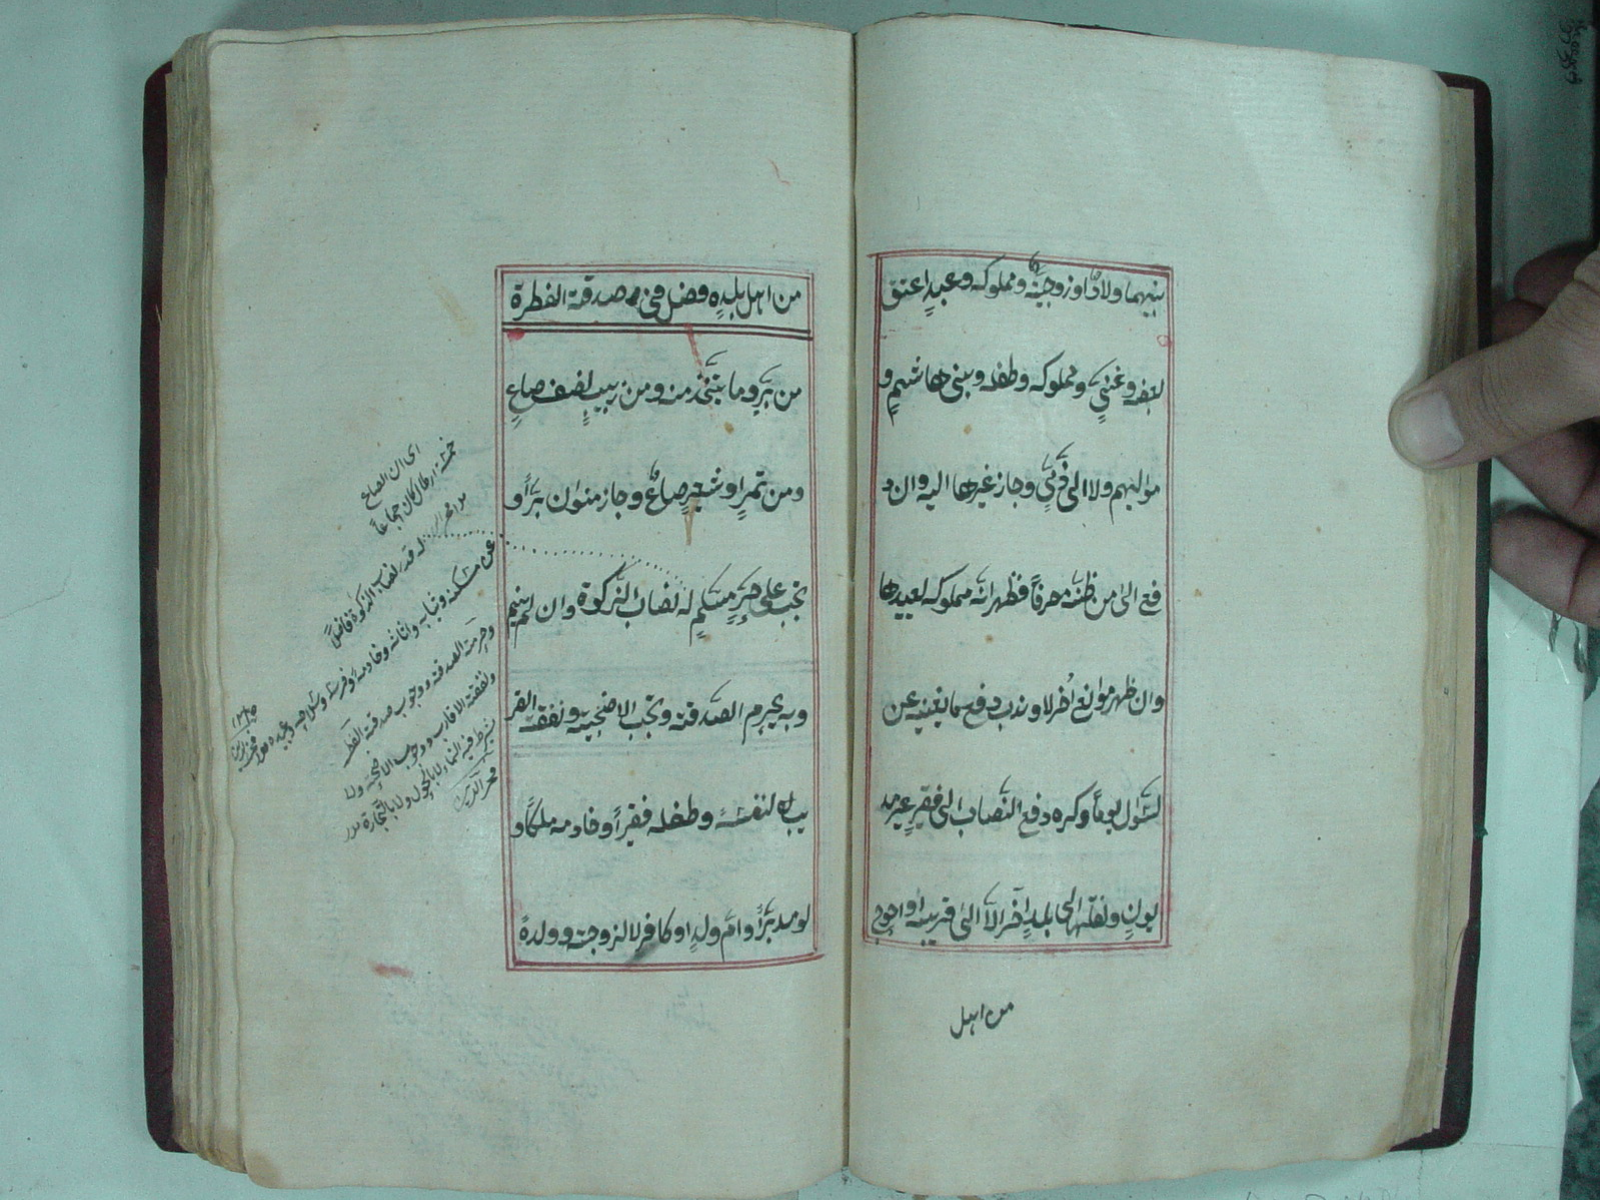 بينهما ولادٌ او زوجيةٌ ومملوكه وعبدٍ اعتق
بعضه وغنيٍ ومملوكه وطفله وبني هاشمٍ و
مواليهم ولا الى ذميٍ وجاز غيرها اليه وان د
فع الى من ظنه مصرفاً فظهر انه مملوكه يعيدها
وان ظهر موانع اُخر لا وندب دفع ما يغنيه عن
السؤال يوماً وكره دفع النصاب الى فقيرٍ غير مد
يونٍ ونقلها الى بلدٍ آخر الا الى قريبه او احوج
من اهل
من اهل بلده فصل في صدقة الفطرة
من برٍ وما يتخذ منه ومن زبيبٍ نصف صاعٍ
ومن تمرٍ او شعيرٍ صاعٌ وجاز منوان براً و
تجب على حرٍ مسلمٍ له نصاب الزكوة وان لم ينم
وبه يحرم الصدقة وتجب الاضحية ونفقة القر
يب له لنفسه وطفله فقيراً وخادمه ملكاً و
لو مدبراً وام ولدٍ او كافر لا لزوجته وولده
اى ان الصاع
خمسة ارطال
له قدر نصاب الزكوة فاضلاً
عن مسكنه وثيابه واثاثه وخادمه وفرسه وسلاحه وعبيده
وحرمة الصدقة ووجوب صدقة الفطر
ونفقة الاقارب ووجوب الاضحية ولا
يشترط فيه النماء لا بالحول ولا بالتجارة